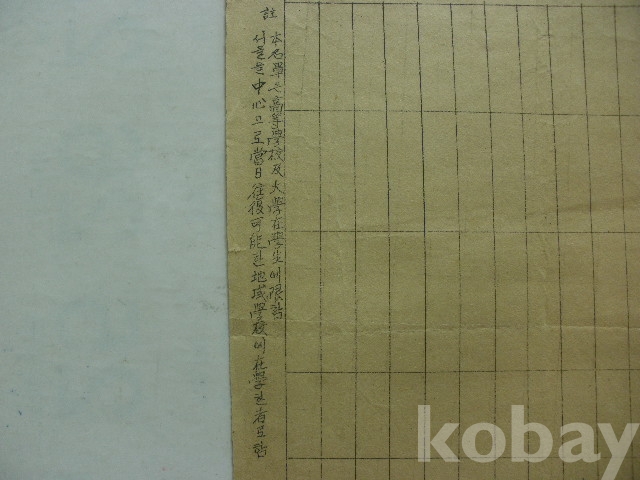 註
本名單은高等學校及大學在學生에限함
서울을中心으로當日往復可能한地域學校에在學한者로함
kobay